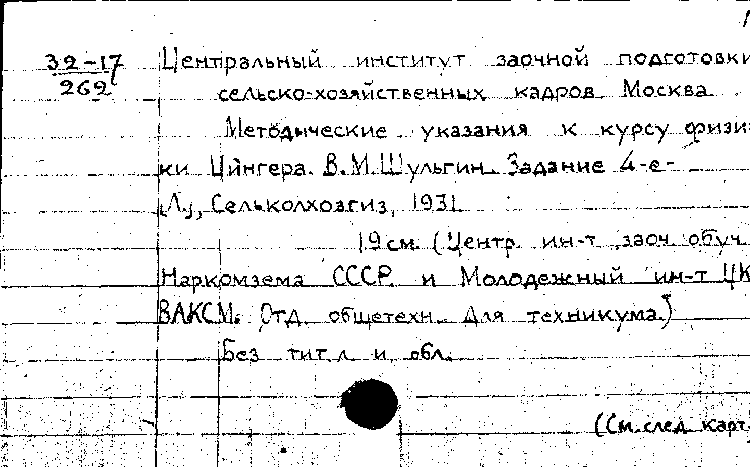 32-17
262
Центральный институт заочной подготовки
сельско-хозяйственных кадров. Москва
Методические указания к курсу физи-
ки Цингера. В.М.Шульгин. Задание 4-е-
Л., Сельколхозгиз, 1931.
19см. (Центр. ин-т заоч. обуч.
Наркомзема СССР. и Молодежный ин-т ЦК
ВЛКСМ. Отд. общетехн. Для техникума.)
Без тит. л. и обл.
(См. след. карт.